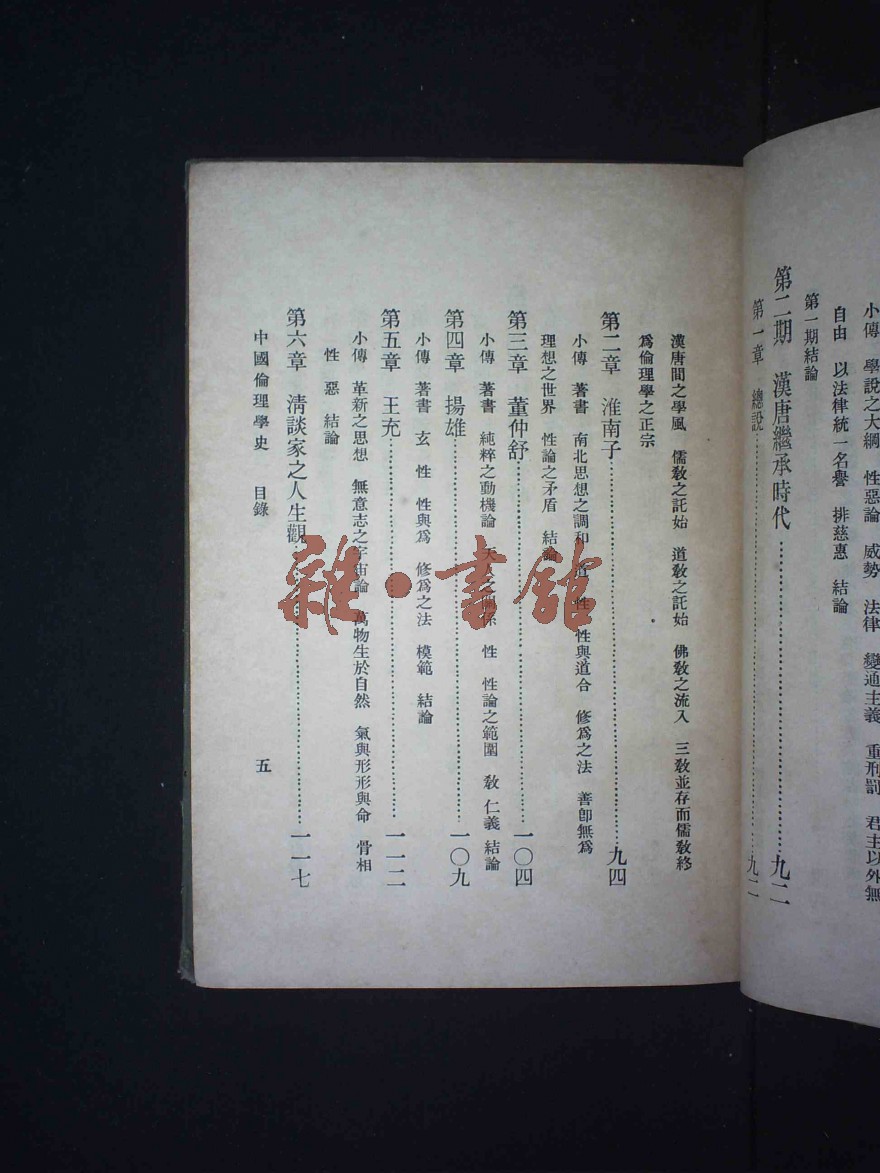 小傳　學說之大綱　性惡論　威勢　法律　變通主義　重刑罰　君主以外無
自由　以法律統一名譽　排慈惠　結論
第一期結論
第二期　漢唐繼承時代……九二
第一章　總說……九二
漢唐間之學風　儒教之託始　道教之託始　佛教之流入　三教並存而儒教終
爲倫理學之正宗
第二章　淮南子……九四
小傳　著書　南北思想之調和　道　性　性與道合　修爲之法　善卽無爲
理想之世界　性論之矛盾　結論
第三章　董仲舒……一〇四
小傳　著書　純粹之動機論　天人之關係　性　性論之範圍　教　仁義　結論
第四章　揚雄……一〇九
小傳　著書　玄　性　性與爲　修爲之法　模範　結論
第五章　王充……一一二
小傳　革新之思想　無意志之宇宙論　萬物生於自然　氣與形形與命　骨相
性　惡　結論
第六章　淸談家之人生觀……一一七
中國倫理學史　目錄　五
雜·書館